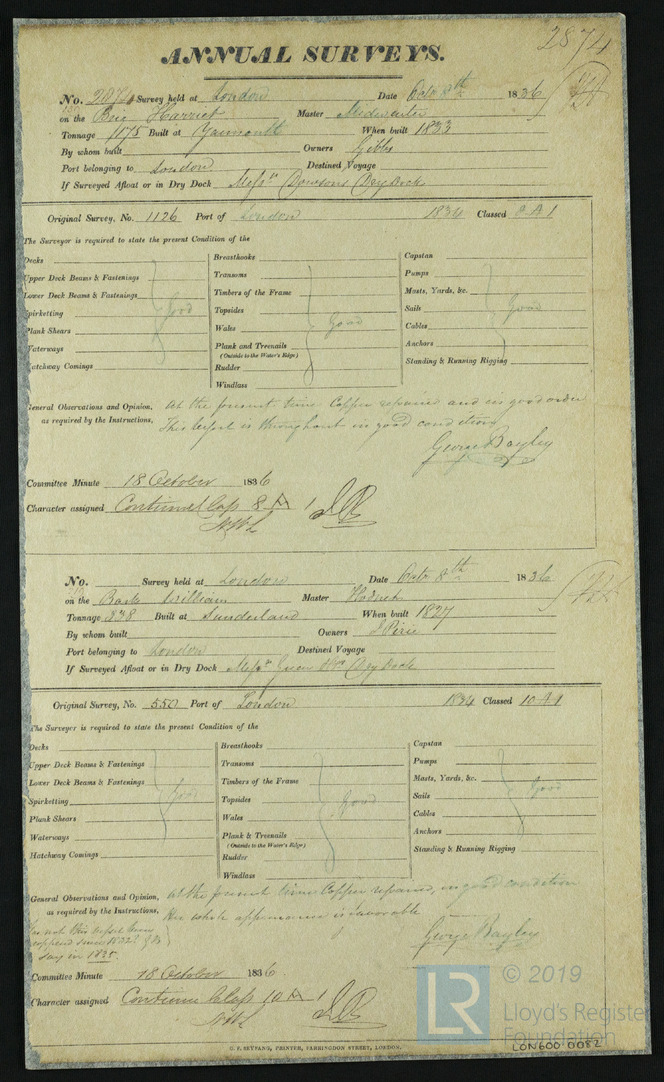 2874
ANNUAL SURVEYS.
No. 2874 Survey held at London Date Octr 8th 1836
on the Brig Harriet Master
Tonnage 175 Built at Yarmouth When built 1833
By whom built Owners Gibbs
Port belonging to London Destined Voyage
If Surveyed Afloat or in Dry Dock Messrs Dowsons Dry Dock
Original Survey, No. 1126 Port of London 1834 Classed 8 A 1
The Surveyor is required to state the present Condition of the
Decks
Upper Deck Beams & Fastenings
Lower Deck Beams & Fastenings
Spirketting Good
Plank Shears
Waterways
Hatchway Comings
Breasthooks
Transoms
Timbers of the Frame
Topsides
Wales Good
Plank and Treenails
(Outside to the Water's Edge)
Rudder
Windlass
Capstan
Pumps
Masts, Yards, &c.
Sails Good
Cables
Anchors
Standing & Running Rigging
General Observations and Opinion, as required by the Instructions,
At the present time Copper repaired and in good order
This vessel is throughout in good condition
George Bayley
Committee Minute 18 October 1836
Character assigned Continued Class 8 A 1
No. Survey held at London Date Octr 8th 1836
on the Bark William Master
Tonnage 338 Built at Sunderland When built 1827
By whom built Owners J Pirie
Port belonging to London Destined Voyage
If Surveyed Afloat or in Dry Dock Messrs Green &Co Dry Dock
Original Survey, No. 550 Port of London 1834 Classed 10 A 1
The Surveyor is required to state the present Condition of the
Decks
Upper Deck Beams & Fastenings
Lower Deck Beams & Fastenings
Spirketting Good
Plank Shears
Waterways
Hatchway Comings
Breasthooks
Transoms
Timbers of the Frame
Topsides Good
Wales
Plank & Treenails
(Outside to the Water's Edge)
Rudder
Windlass
Capstan
Pumps
Masts, Yards, &c.
Sails Good
Cables
Anchors
Standing & Running Rigging
General Observations and Opinion, as required by the Instructions,
At the present time Copper repaired, in good condition
Her whole appearance is favorable
George Bayley
Has not this vessel been
coppered since 1832? GB
say in 1835
Committee Minute 18 October 1836
Character assigned Continued Class 10 A 1
G. F. SEYFANG, PRINTER, FARRINGDON STREET, LONDON.
LR
© 2019
Lloyd's Register
Foundation
LON600-0082